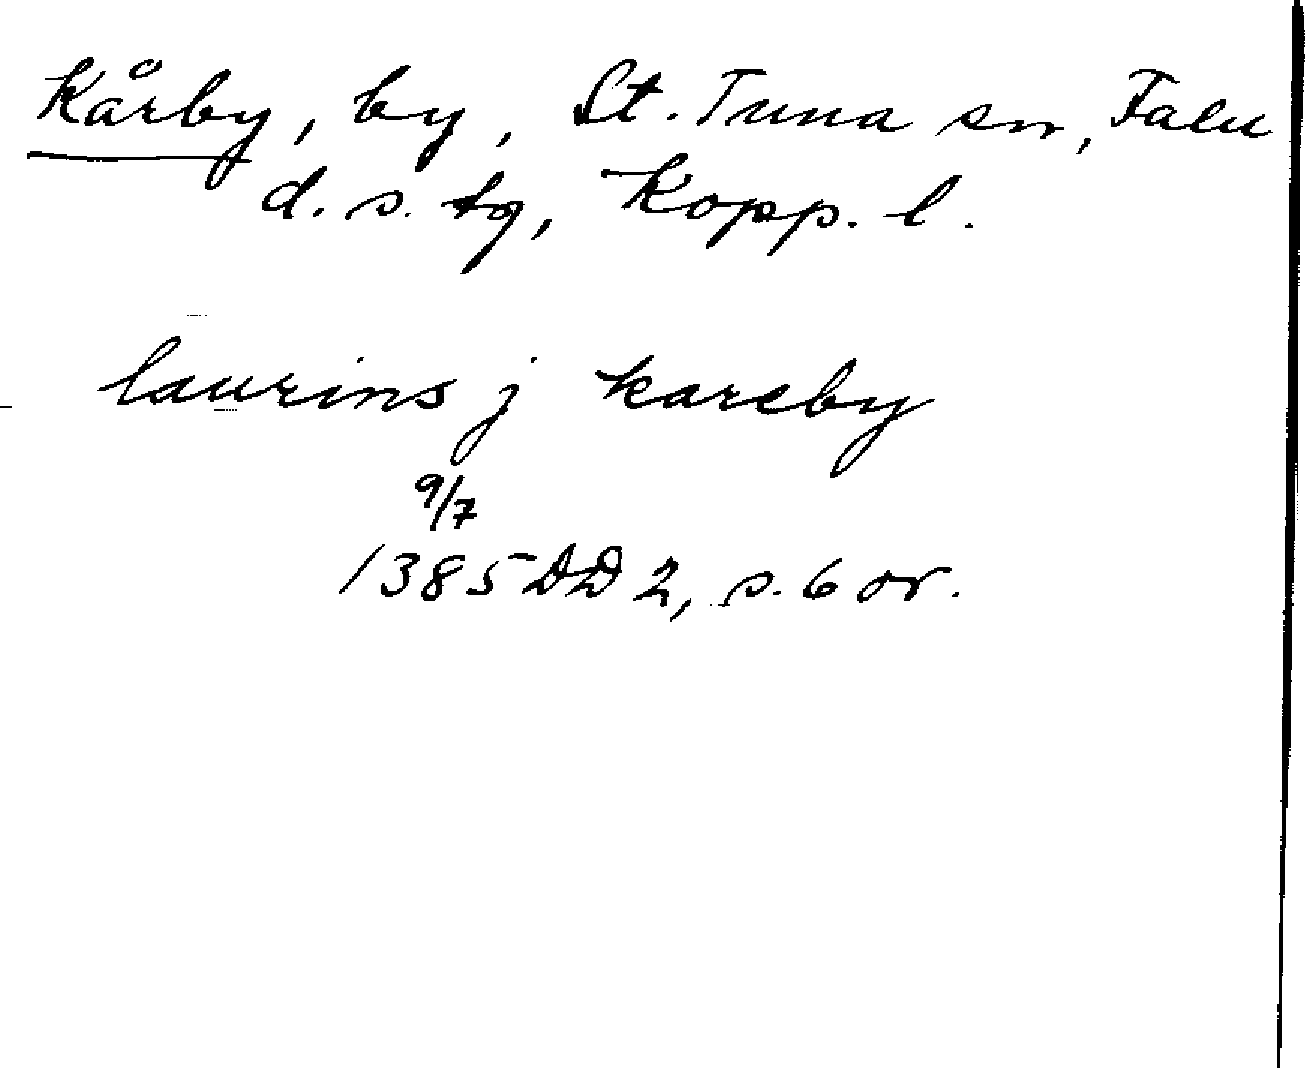 Kårby, by, St. Tuna sn, Falu
d. s. tg, Kopp. l.
laurins j kareby
9/7
1385 DD 2, s. 6 or.